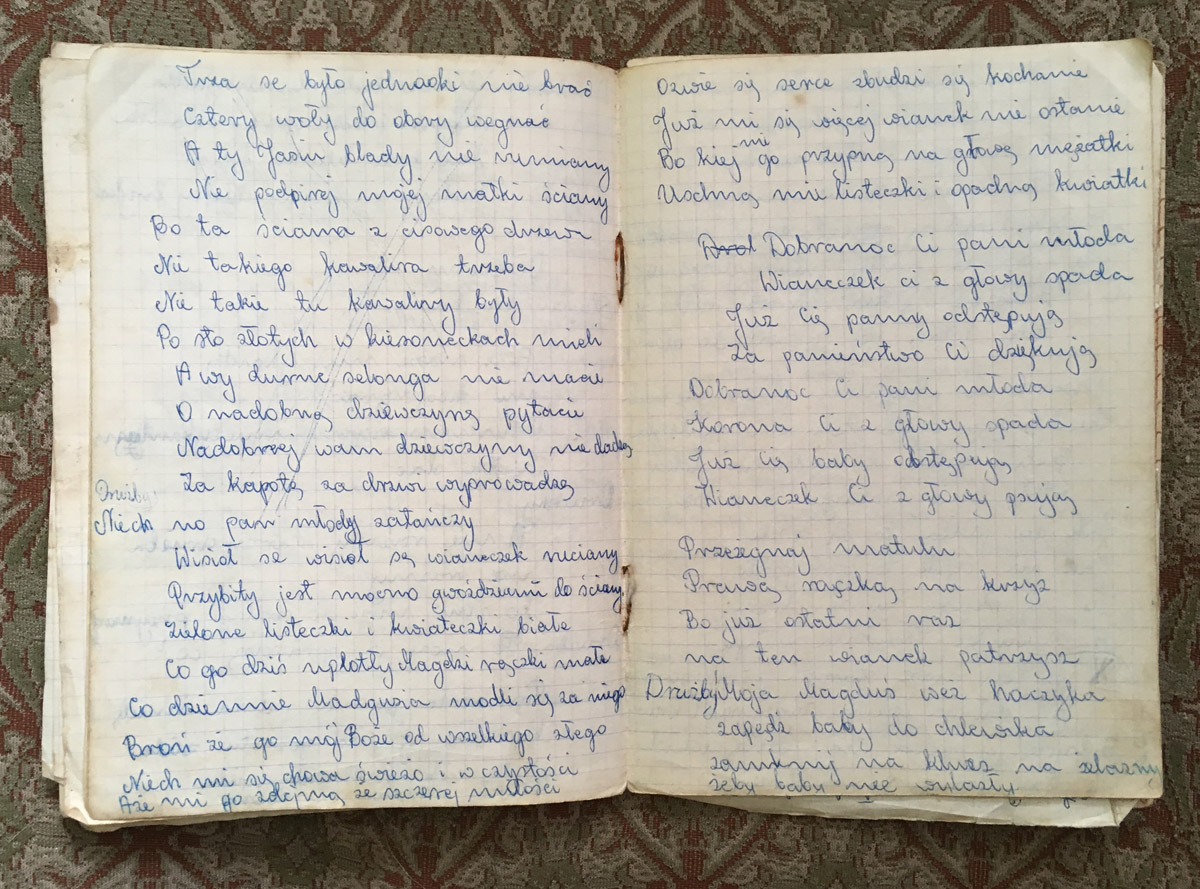 Trza se było jednacki nie brać
Cztery woły do obory wegnać
A ty Jasiu blady nie rumiany
Nie podpiraj mojej matki ściany
Bo ta ściana z cisowego drzewa
Nie takiego kawalira trzeba
Nie takie tu kawaliry były
Po sto złotych w kiesoneckach mieli
A wy durne selonga nie macie
O nadobną dziewczynę pytacie
Nadobnej wam dziewczyny nie dadzą
Za kapotę za drzwi wyprowadzą
Drużba:
Niech no pan młody zatańczy
Wisioł se wisioł są wianeczek ruciany
Przybity jest mocno gwoździami do ściany.
Zielone listeczki i kwiateczki białe
Co go dziś uplotły Magdzi rączki małe
Co dziennie Madguzia modli się za niego
Broń że go mój Boże od wszelkiego złego
Niech mi się chowa świeżo i w czystości
Aże mi go zdejmą ze szczerej miłości
Ozwie się serce zbudzi się kochanie
Już mi się więcej wianek nie ostanie
Bo kiej mi go przypną na głowę mężatki
Uschną mie listeczki i opadną kwiatki
Dobranoc Ci pani młoda
Wianeczek ci z głowy spada
Już Cię panny odstępują
Za panieństwo Ci dziękują
Dobranoc Ci pani młoda
Korona Ci z głowy spada
Już cię baby obstępują
Wianeczek Ci z głowy psują
Przeżegnaj matulu
Prawą rączką na krzyż
Bo już ostatni raz
na ten wianek patrzysz
Drużby Moja Magduś weź haczyka
zapędź baby do chlewika
zamknij na klucz na żelazny
żeby baby nie wylazły